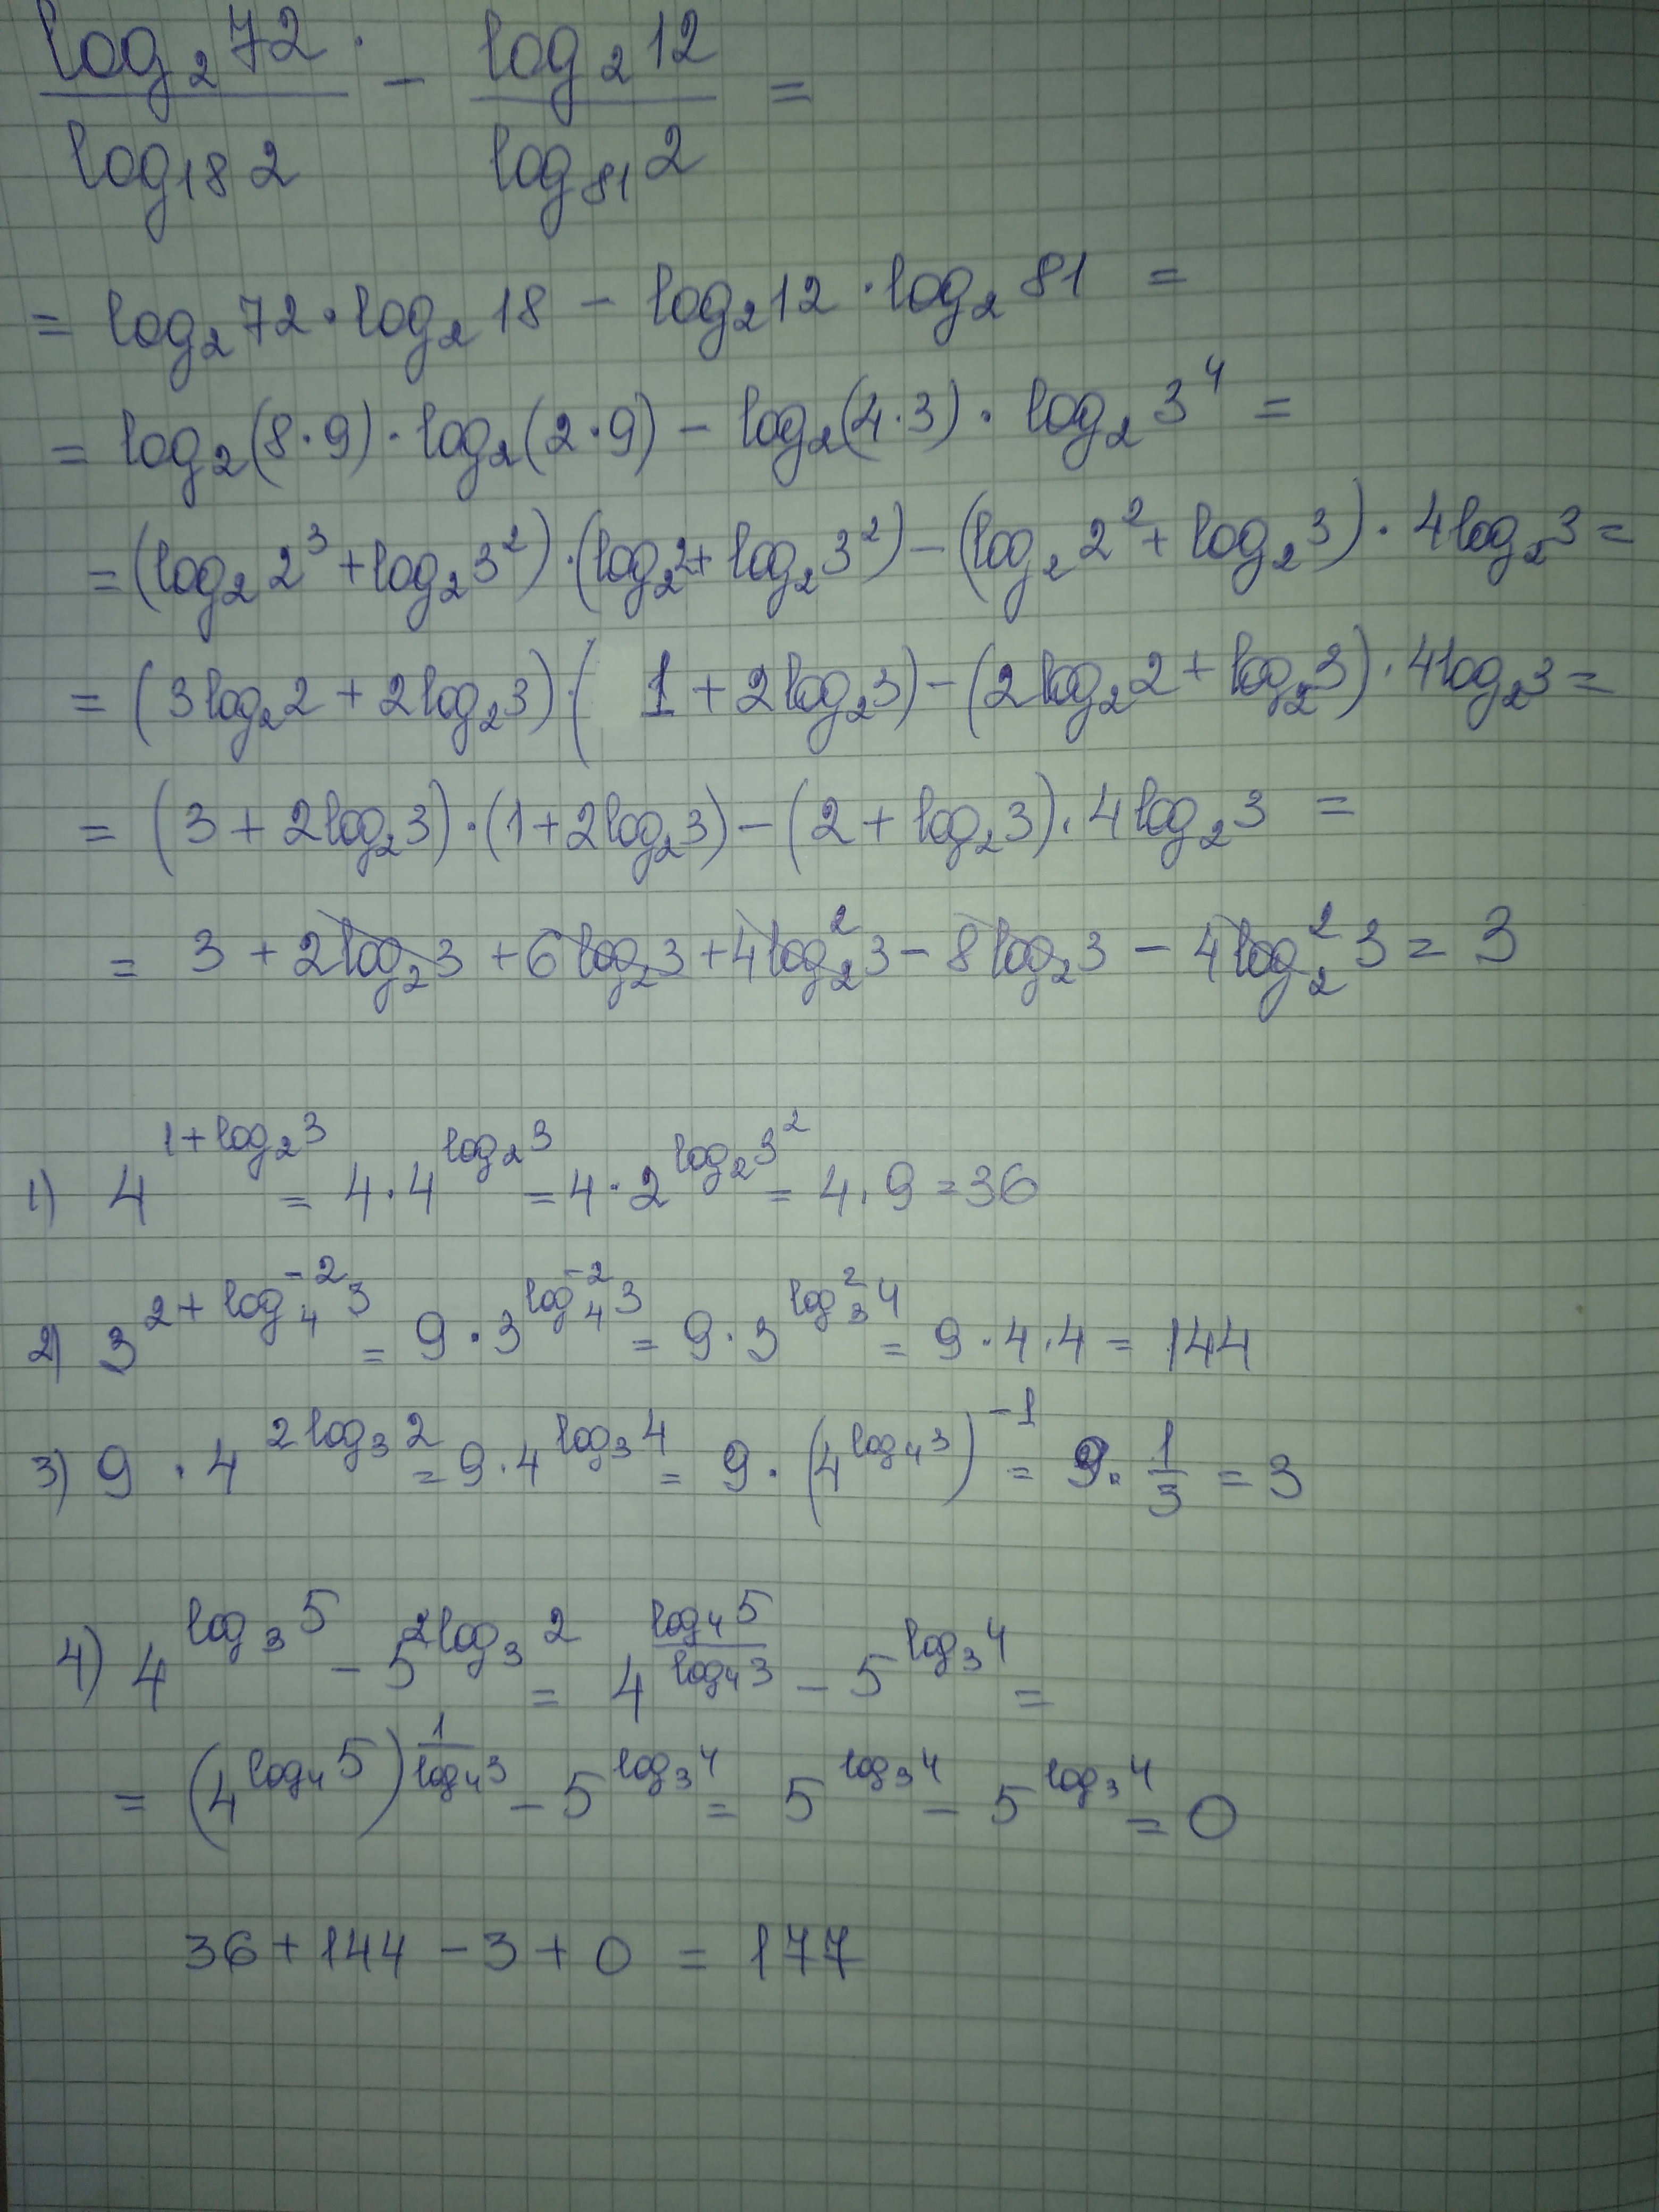 log₂72/log₁₈2 - log₂12/log₈₁2 =
= log₂72·log₂18 - log₂12·log₂81 =
= log₂(8·9)·log₂(2·9) - log₂(4·3)·log₂3⁴ =
= (log₂2³ + log₂3²)·(log₂2 + log₂3²) - (log₂2² + log₂3)·4log₂3 =
= (3log₂2 + 2log₂3)·(1 + 2log₂3) - (2log₂2 + log₂3)·4log₂3 =
= (3 + 2log₂3)·(1 + 2log₂3) - (2 + log₂3)·4log₂3 =
= 3 + 2log₂3 + 6log₂3 + 4log₂²3 - 8log₂3 - 4log₂²3 = 3
1) 4^(1+log₂3) = 4·4^(log₂3) = 4·2^(log₂3²) = 4·9 = 36
2) 3^(2+log₄⁻²3) = 9·3^(log₄⁻²3) = 9·3^(log₃²4) = 9·4·4 = 144
3) 9·4^(2log₃2) = 9·4^(log₃4) = 9·(4^(log₄3))⁻¹ = 9·1/3 = 3
4) 4^(log₃5) - 5^(2log₃2) = 4^(log₄5/log₄3) - 5^(log₃4) =
= (4^(log₄5))^(1/log₄3) - 5^(log₃4) = 5^(log₃4) - 5^(log₃4) = 0
36 + 144 - 3 + 0 = 177